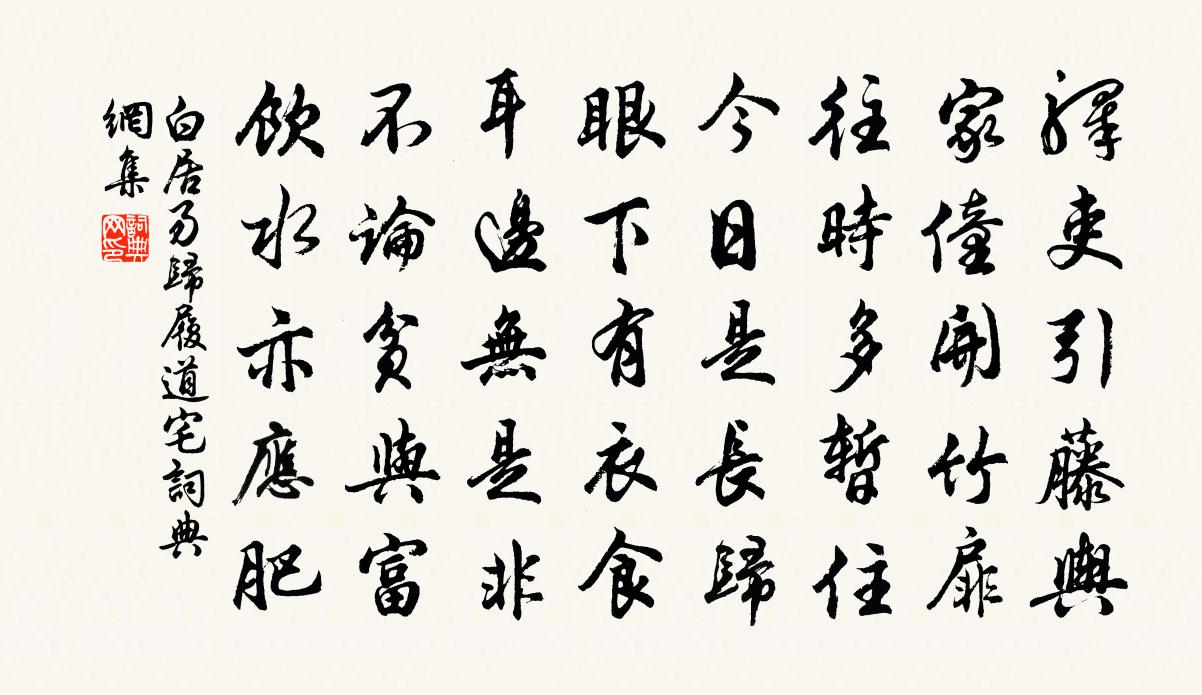 驛吏引藤輿
家僮開竹扉
往時多暫住
今日是長歸
眼下有衣食
耳邊無是非
不論貧與富
飲水亦應肥
白居易歸履道宅詞典
網集
詞典
网印